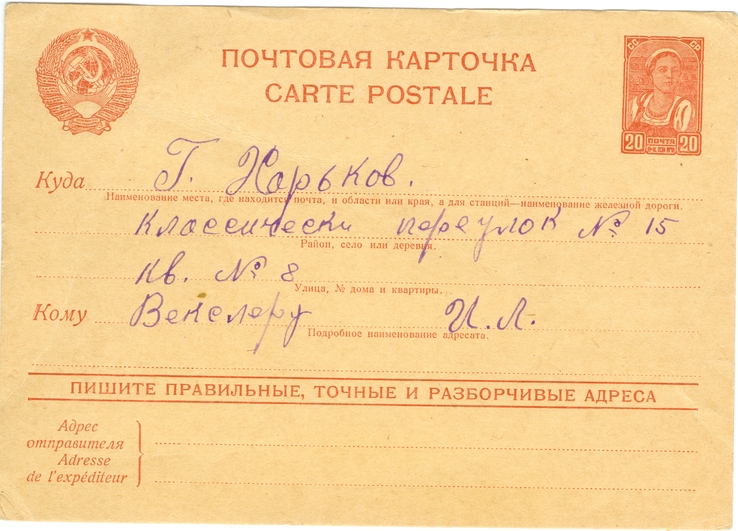 ПОЧТОВАЯ КАРТОЧКА
CARTE POSTALE
СС СР
20 ПОЧТА КОП 20
Куда Г. Харьков.
Наименование места, где находится почта, и области или края, а для станций—наименование железной дороги.
Классически переулок № 15
Район, село или деревня.
кв. № 8
Улица, № дома и квартиры.
Кому Векслеру И. Л.
Подробное наименование адресата.
ПИШИТЕ ПРАВИЛЬНЫЕ, ТОЧНЫЕ И РАЗБОРЧИВЫЕ АДРЕСА
Адрес
отправителя
Adresse
de l'expéditeur